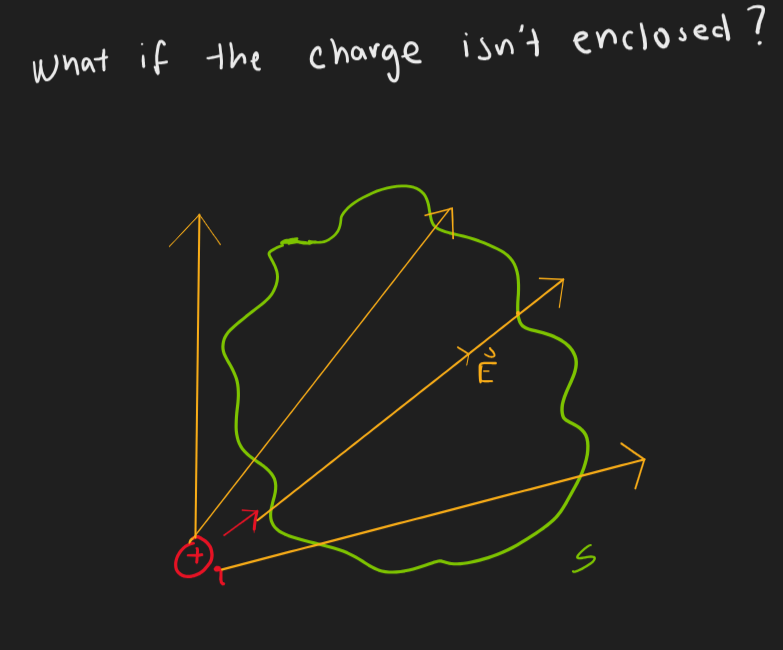 What if the charge isn't enclosed?
E⃗
+
S